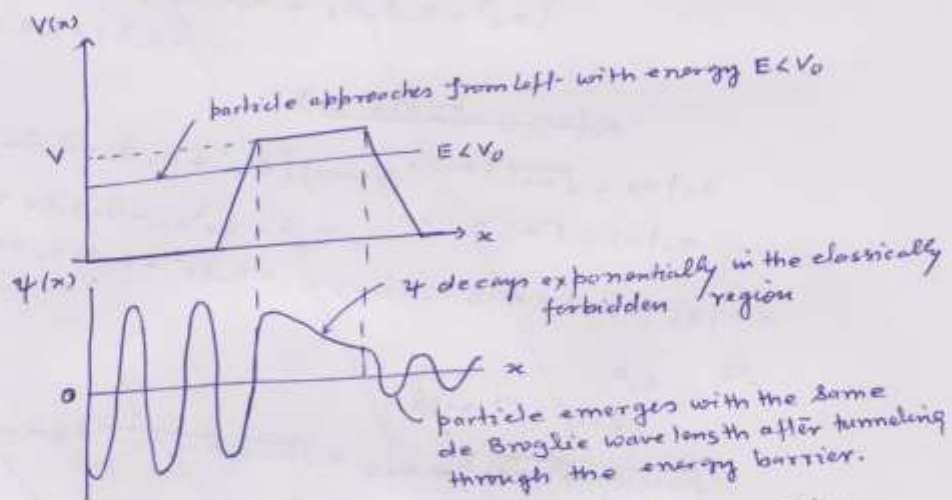 V(x)
particle approaches from left with energy E < V₀
V
E < V₀
x
ψ(x)
ψ decays exponentially in the classically
forbidden region
0
x
particle emerges with the same
de Broglie wave length after tunneling
through the energy barrier.